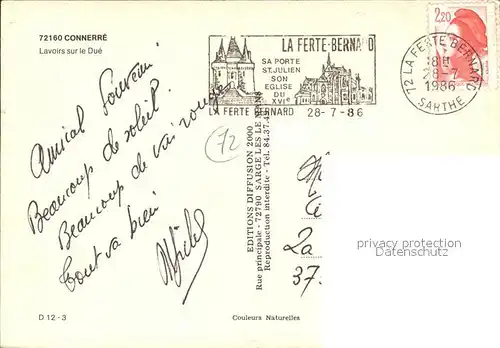 72160 CONNERRÉ
Lavoirs sur le Dué
2,20
LA FERTE-BERNARD
SA PORTE
ST.JULIEN
SON
EGLISE
DU
XVIe
LA FERTE BERNARD 28-7-86
72 LA FERTE-BERNARD
18H
28-7
1986
SARTHE
Amical Souvenir
Beaucoup de soleil.
Beaucoup de vin rouge
Tout va bien
72
EDITIONS DIFFUSION 2000
Rue principale - 72790 SARGE LES LE MANS
Reproduction interdite - Tél. 84.37.
La
37
privacy protection
Datenschutz
D 12-3
Couleurs Naturelles